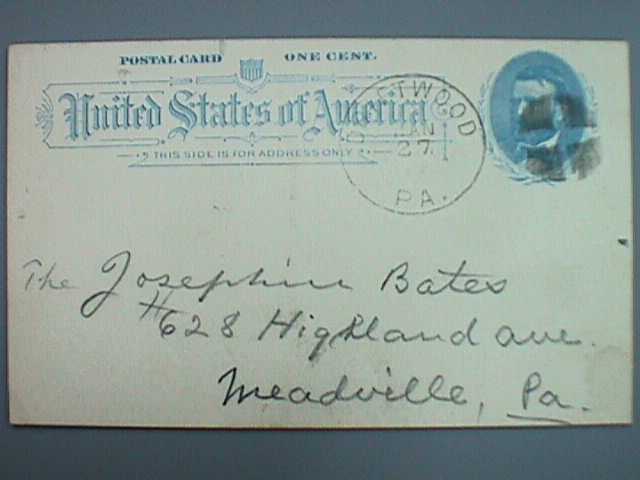 POSTAL CARD ONE CENT.
United States of America
THIS SIDE IS FOR ADDRESS ONLY
TWOOD
JAN
27
PA.
The Josephine Bates
#628 Highland ave.
Meadville, Pa.